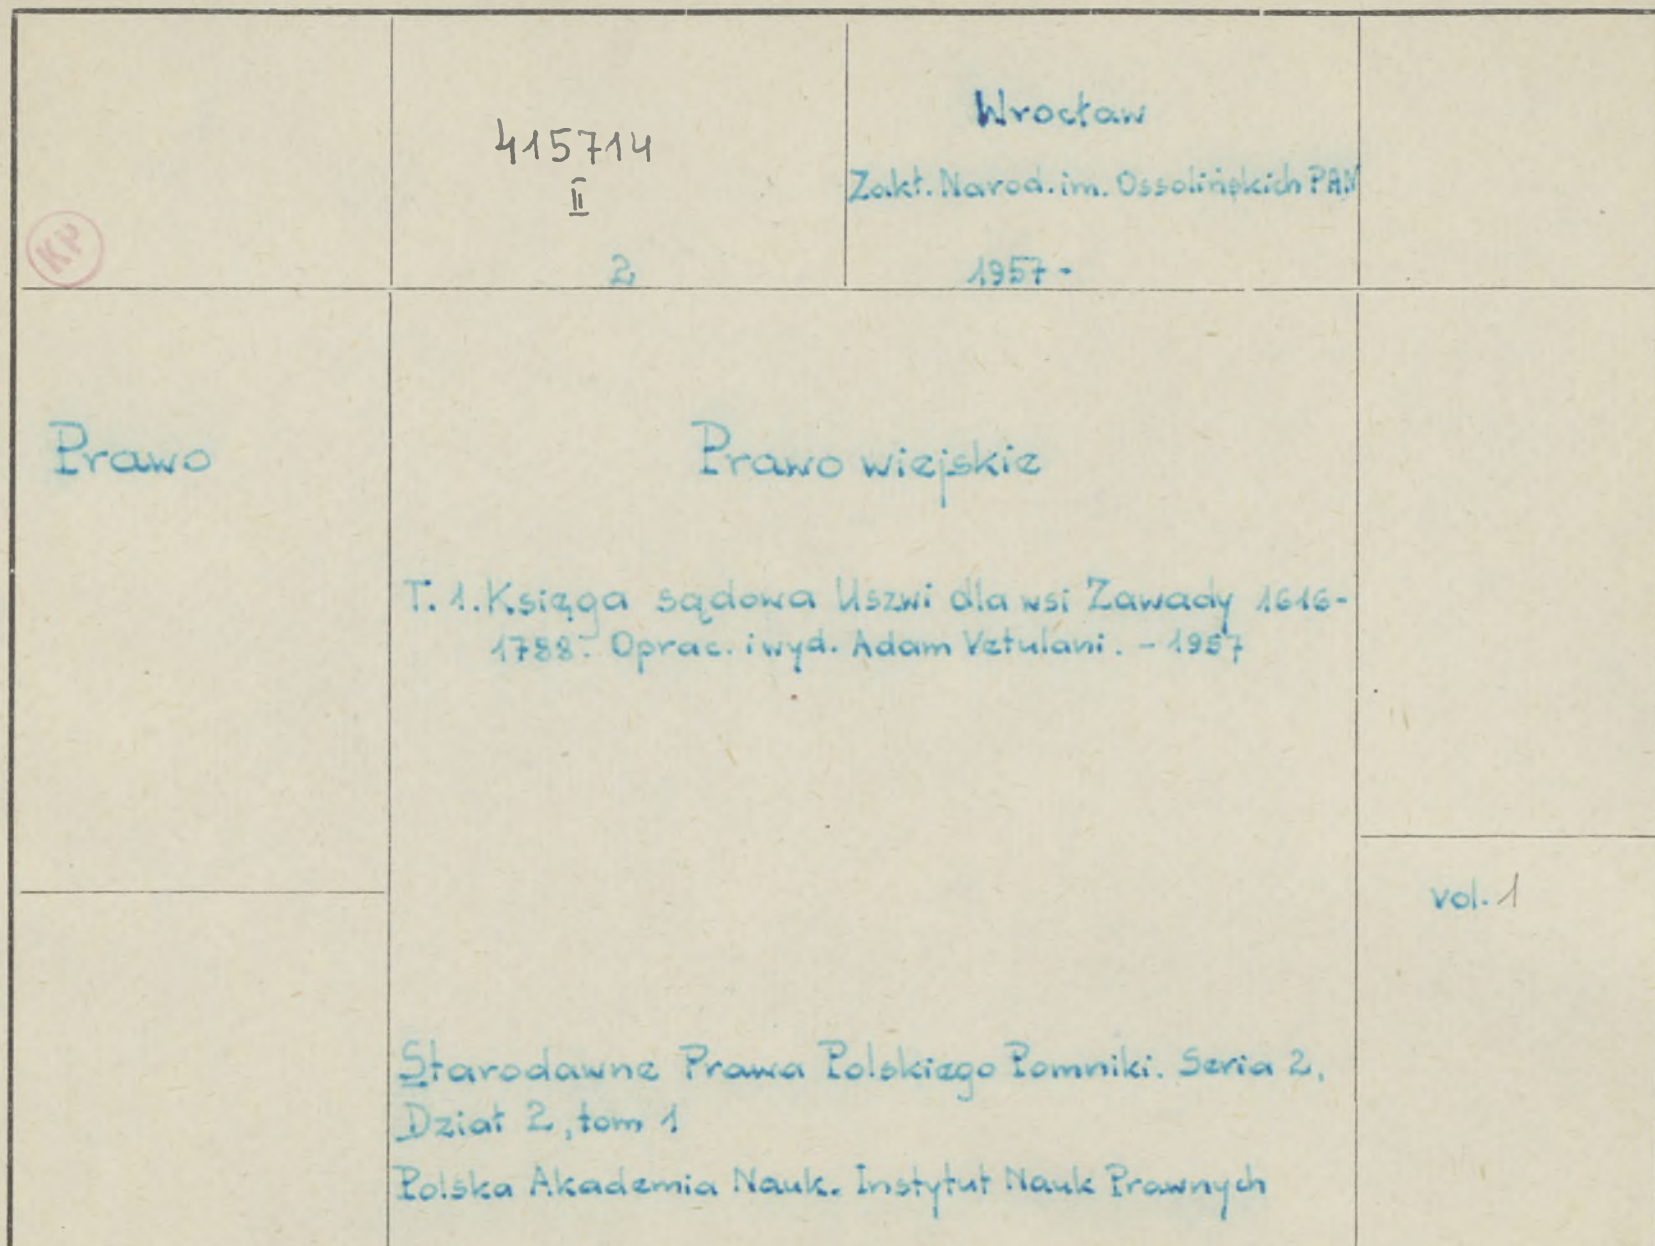 415714
II
2
Wrocław
Zakł. Narod. im. Ossolińskich PAN
1957-
KP
Prawo
Prawo wiejskie
T. 1. Księga sądowa Uszwi dla wsi Zawady 1616-
1788. Oprac. i wyd. Adam Vetulani. - 1957
vol. 1
Starodawne Prawa Polskiego Pomniki. Seria 2,
Dział 2, tom 1
Polska Akademia Nauk. Instytut Nauk Prawnych